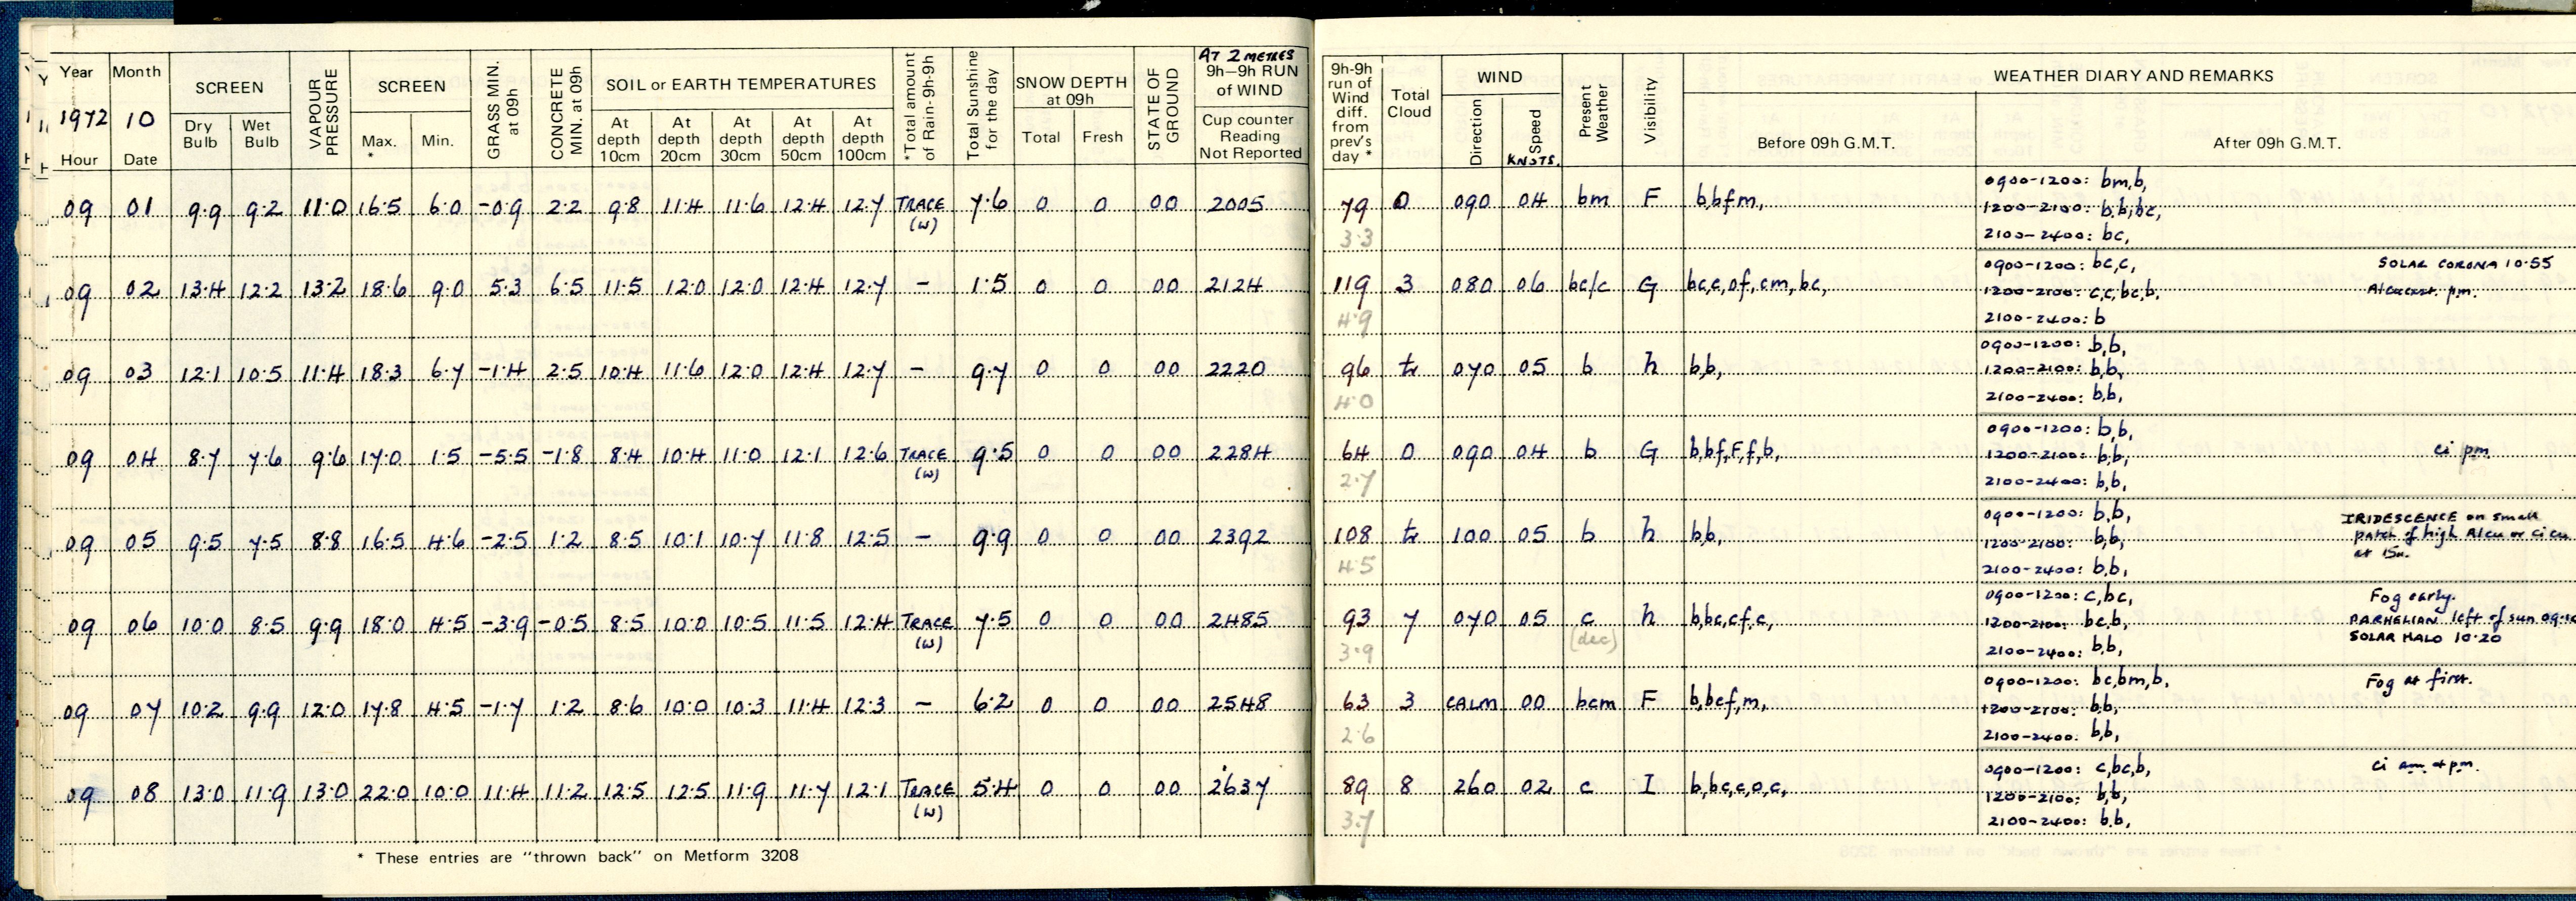 Year Month SCREEN VAPOUR PRESSURE SCREEN GRASS MIN. at 09h CONCRETE MIN. at 09h SOIL or EARTH TEMPERATURES *Total amount of Rain-9h-9h Total Sunshine for the day SNOW DEPTH at 09h STATE OF GROUND AT 2 METRES 9h-9h RUN of WIND 9h-9h run of Wind diff. from prev's day * Total Cloud WIND Present Weather Visibility WEATHER DIARY AND REMARKS
1972 10 Dry Bulb Wet Bulb Max. * Min. At depth 10cm At depth 20cm At depth 30cm At depth 50cm At depth 100cm Total Fresh Cup counter Reading Not Reported Direction Speed KNOTS. Before 09h G.M.T. After 09h G.M.T.
Hour Date
0900-1200: bm,b,
09 01 9.9 9.2 11.0 16.5 6.0 -0.9 2.2 9.8 11.4 11.6 12.4 12.7 TRACE (W) 7.6 0 0 00 2005 79 0 090 04 bm F b,bfm, 1200-2100: b,b,bc,
3.3 2100-2400: bc,
0900-1200: bc,c, SOLAR CORONA 10.55
09 02 13.4 12.2 13.2 18.6 9.0 5.3 6.5 11.5 12.0 12.0 12.4 12.7 - 1.5 0 0 00 2124 119 3 080 06 bc/c G bc,c,of,cm,bc, 1200-2100: c,c,bc,b. pm.
4.9 2100-2400: b
0900-1200: b,b,
09 03 12.1 10.5 11.4 18.3 6.7 -1.4 2.5 10.4 11.6 12.0 12.4 12.7 - 9.7 0 0 00 2220 96 tr 070 05 b h b,b, 1200-2100: b,b,
4.0 2100-2400: b,b,
0900-1200: b,b,
09 04 8.7 7.6 9.6 17.0 1.5 -5.5 -1.8 8.4 10.4 11.0 12.1 12.6 TRACE (W) 9.5 0 0 00 2284 64 0 090 04 b G b,bf,F,f,b, 1200-2100: b,b, ci pm
2.7 2100-2400: b,b,
0900-1200: b,b, IRIDESCENCE on small
09 05 9.5 7.5 8.8 16.5 4.6 -2.5 1.2 8.5 10.1 10.7 11.8 12.5 - 9.9 0 0 00 2392 108 tr 100 05 b h b,b, 1200-2100: b,b, patch of high Alcu or ci cu
4.5 2100-2400: b,b, at 15h.
0900-1200: c,bc, Fog early.
09 06 10.0 8.5 9.9 18.0 4.5 -3.9 -0.5 8.5 10.0 10.5 11.5 12.4 TRACE (W) 7.5 0 0 00 2485 93 7 070 05 c (dec) h b,bc,cf,c, 1200-2100: bc,b, PARHELIAN left of sun
3.9 2100-2400: b,b, SOLAR HALO 10.20
0900-1200: bc,bm,b, Fog at first.
09 07 10.2 9.9 12.0 17.8 4.5 -1.7 1.2 8.6 10.0 10.3 11.4 12.3 - 6.2 0 0 00 2548 63 3 CALM 00 bcm F b,bcf,m, 1200-2100: b,b,
2.6 2100-2400: b,b,
0900-1200: c,bc,b, ci am & pm.
09 08 13.0 11.9 13.0 22.0 10.0 11.4 11.2 12.5 12.5 11.9 11.7 12.1 TRACE (W) 5.4 0 0 00 2637 89 8 260 02 c I b,bc,c,o,c, 1200-2100: b,b,
3.7 2100-2400: b,b,
* These entries are "thrown back" on Metform 3208